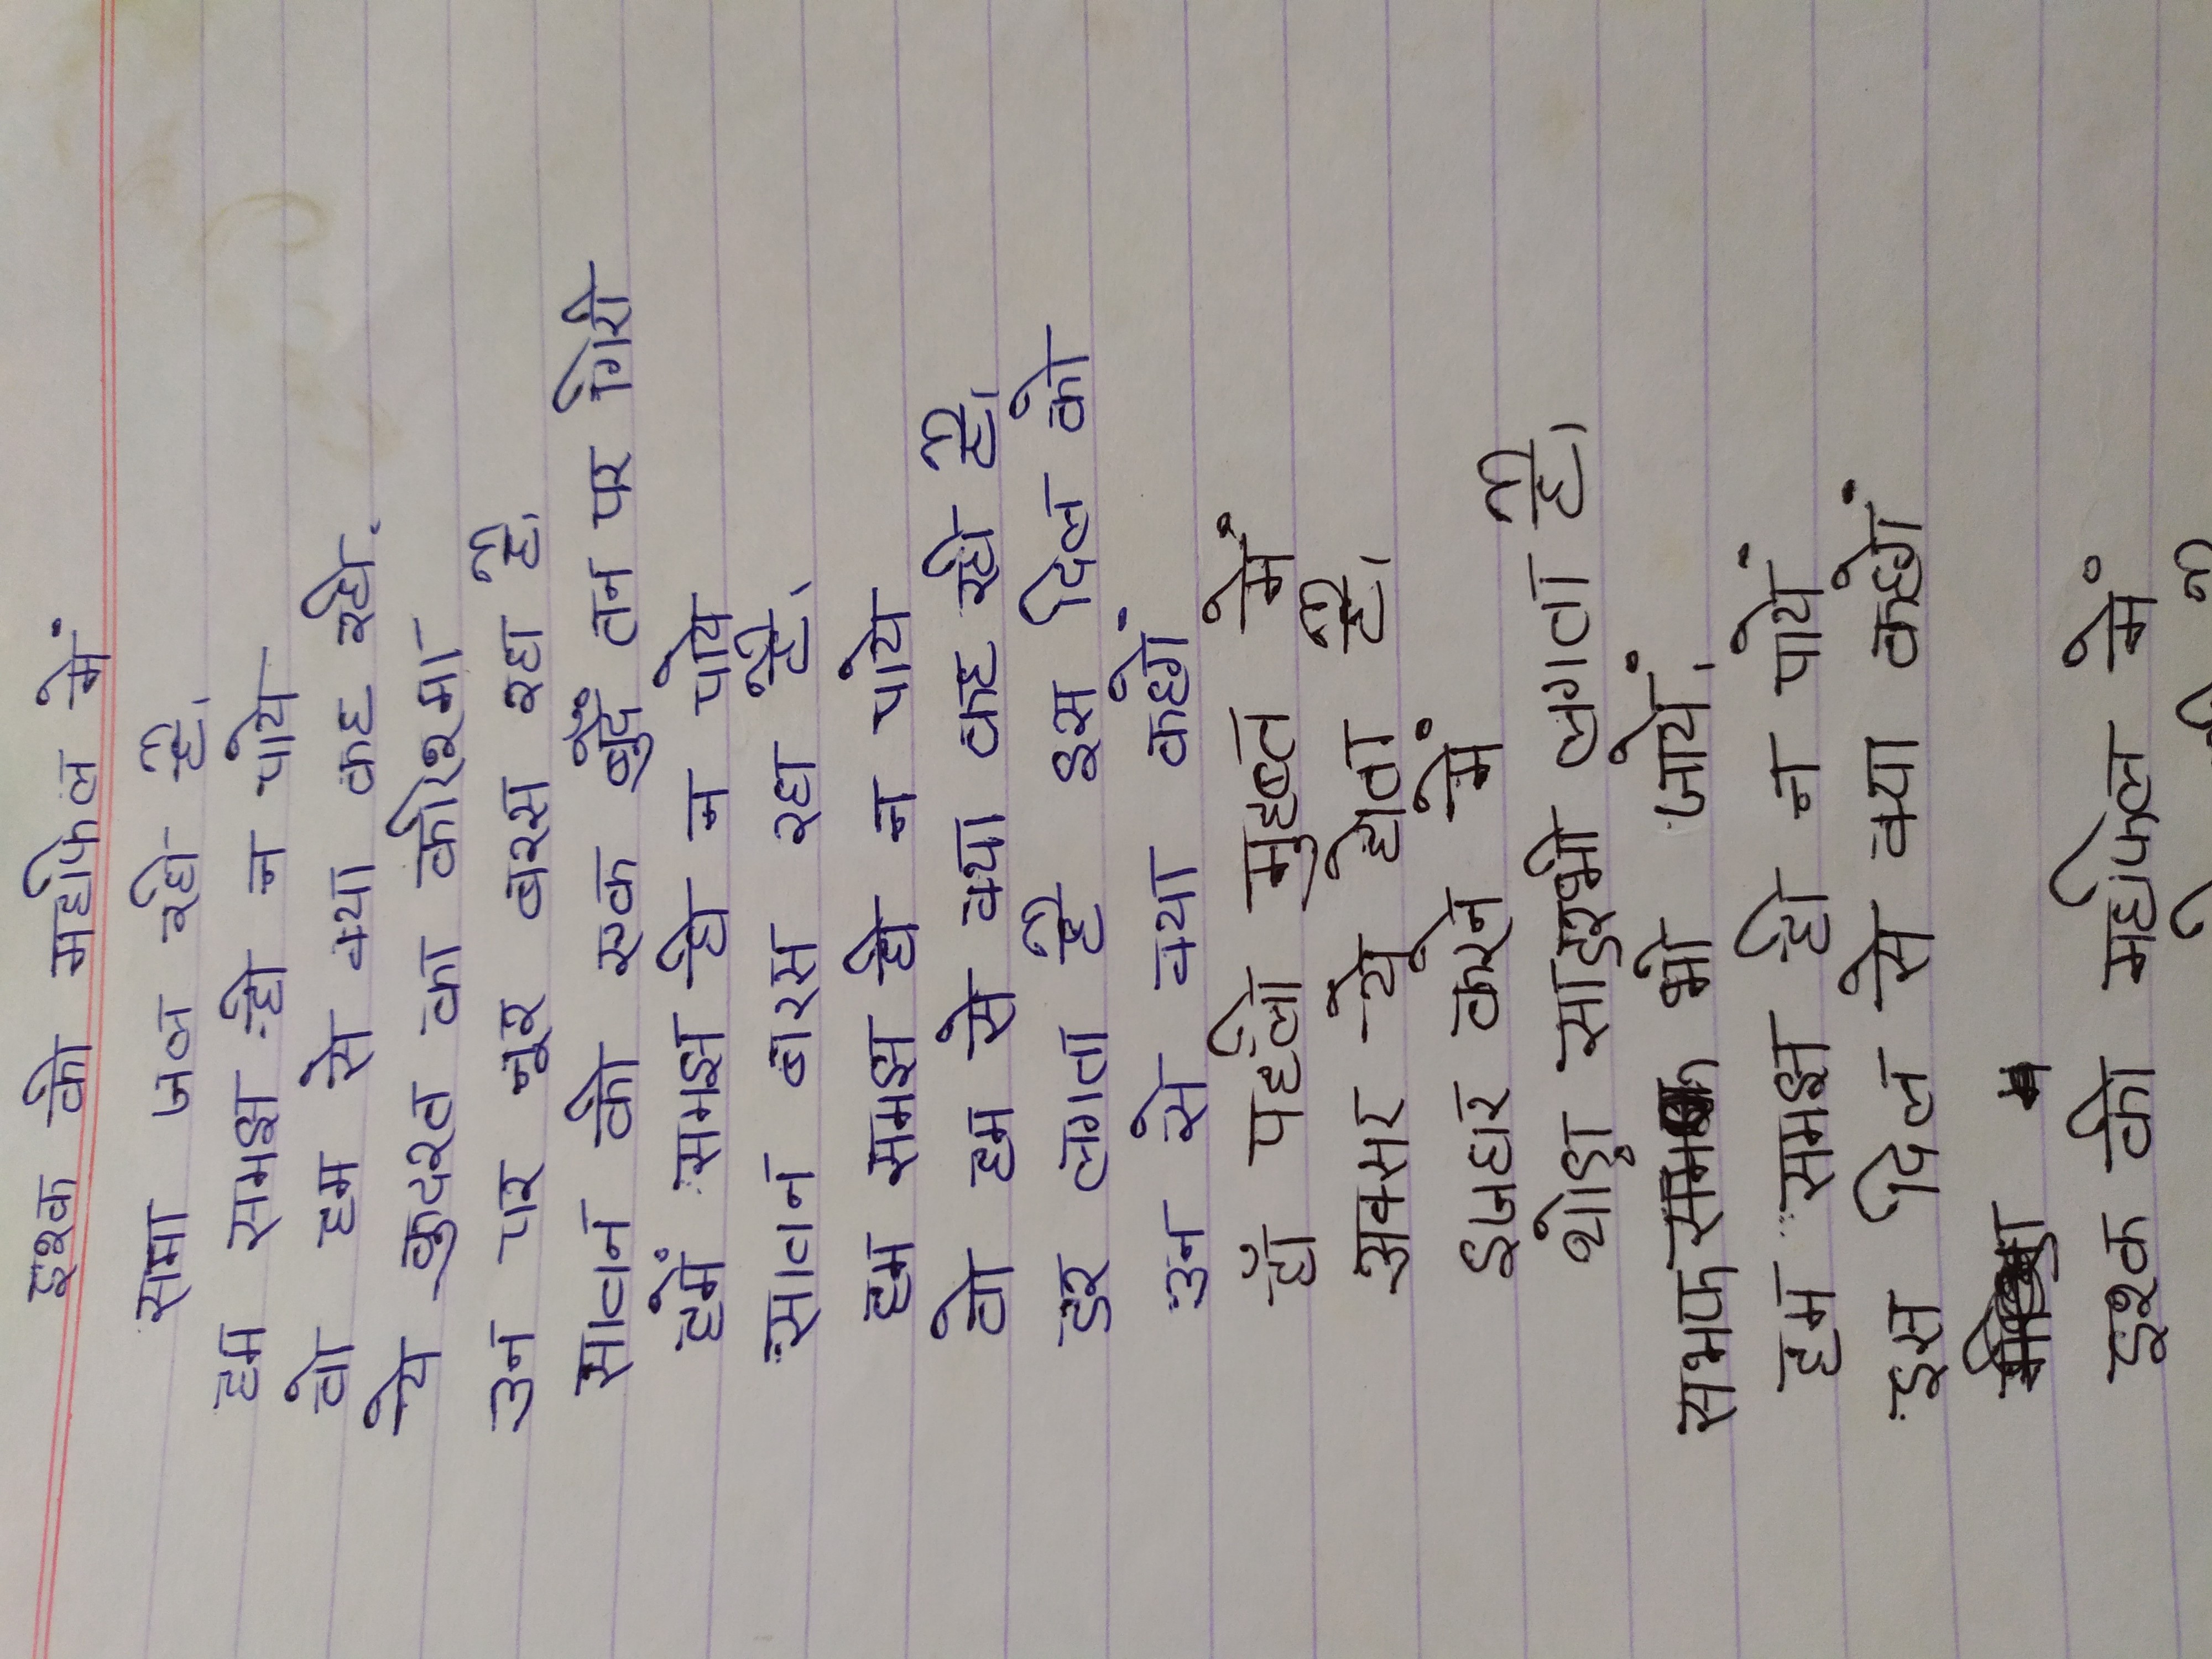 इश्क की महफिल में
समा जल रही है,
हम समझ ही न पाये
वो हम से क्या कह रही.
ये कुदरत का करिश्मा
उन पर नूर बरस रहा है,
सावन की एक बुँदे तन पर गिरी
हमें समझ ही न पाये
सावन बारस रहा है,
हम समझ ही न पाये
वो हम से क्या कह रही है,
डर लगता है इस दिल को
उन से क्या कहेगें
हाँ पहली मुहब्त में
अक्सर ये होता है,
इजहार करने में
थोड़ा सा डर भी लगता है,
सभफ समक भी जायें,
हम समझ ही न पायें
इस दिल से क्या कहेगें
इश्क की महफिल में